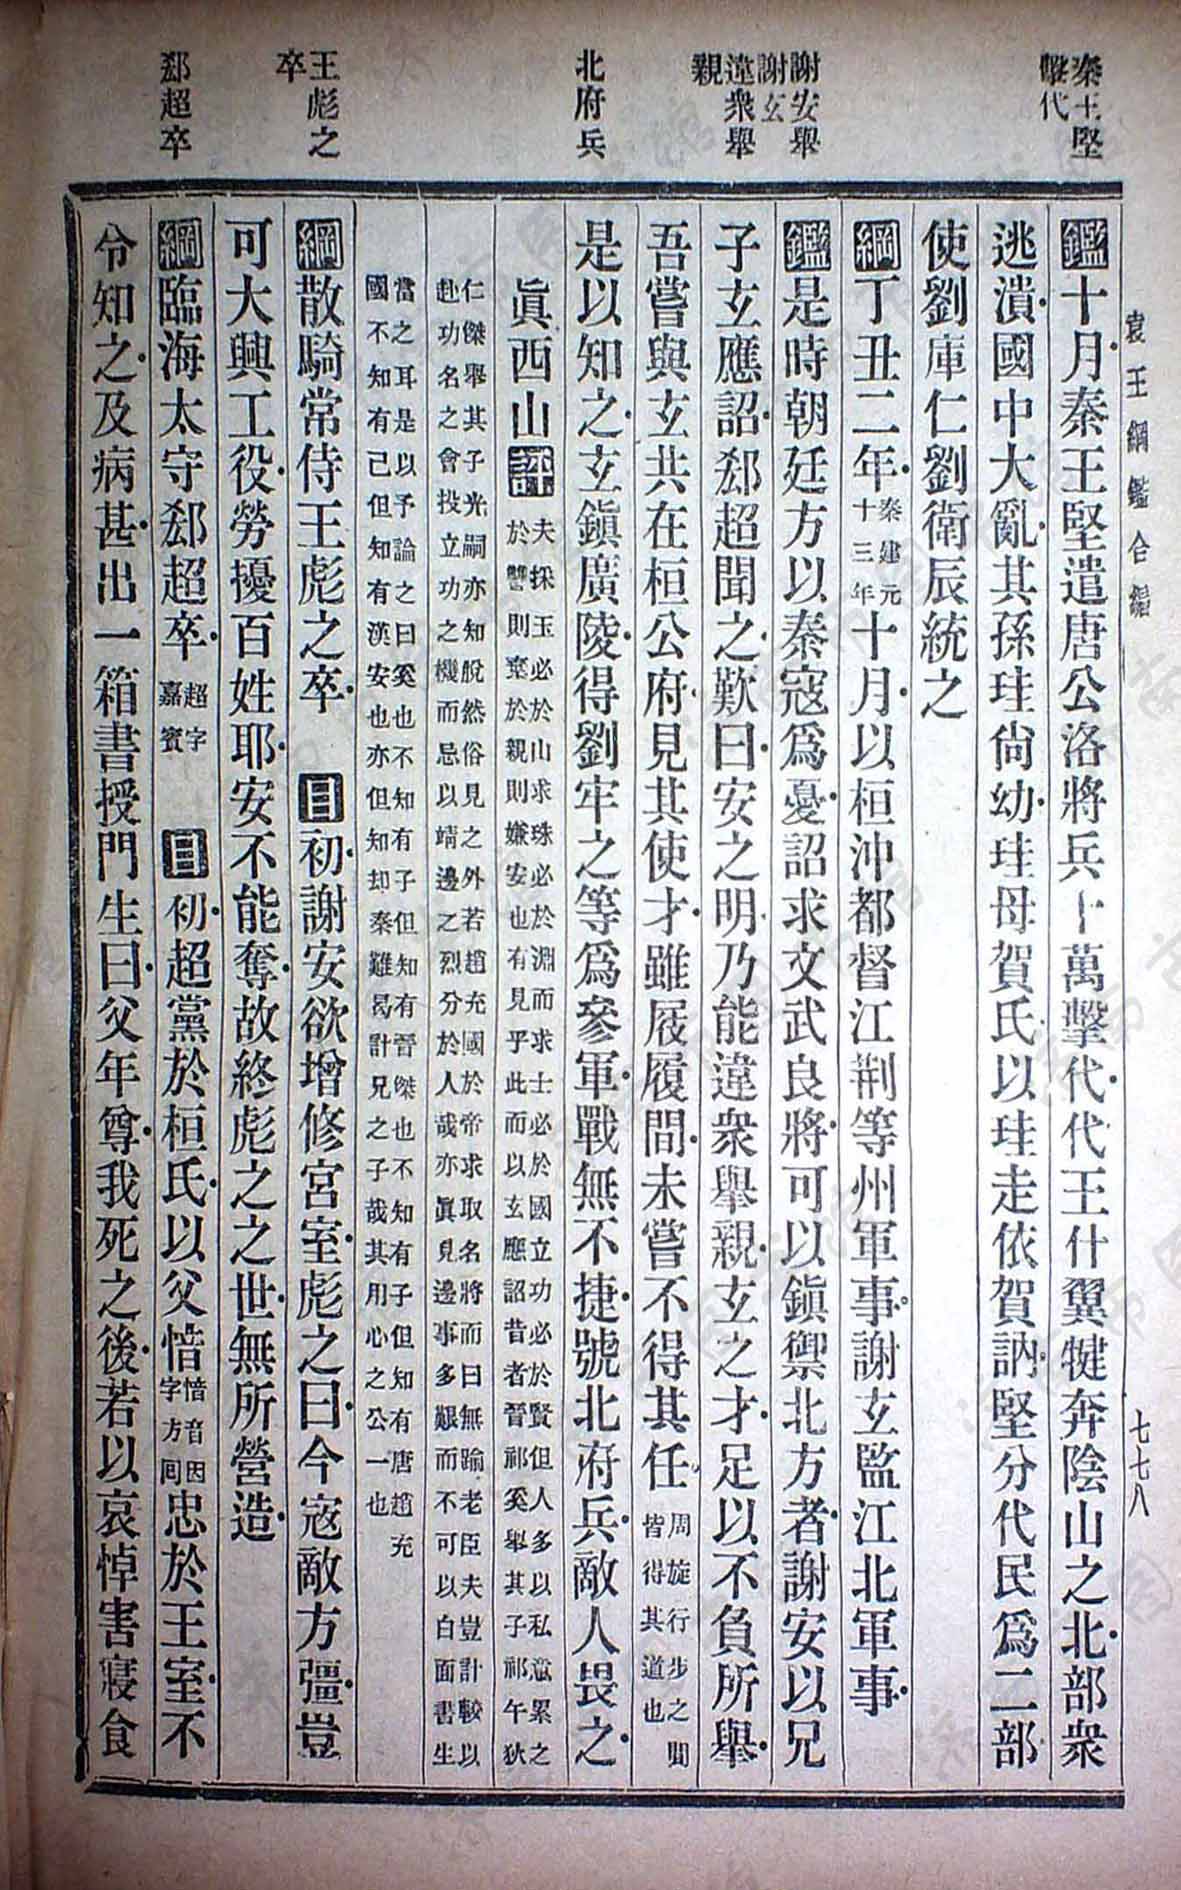 秦王堅
擊代
謝安舉
謝玄
違眾舉
親
北府兵
王彪之
卒
郄超卒
袁王綱鑑合編
七七八
鑑十月秦王堅遣唐公洛將兵十萬擊代代王什翼犍奔陰山之北部衆
逃潰國中大亂其孫珪尙幼珪母賀氏以珪走依賀訥堅分代民爲二部
使劉庫仁劉衛辰統之
綱丁丑二年秦建元十三年十月以桓沖都督江荆等州軍事謝玄監江北軍事
鑑是時朝廷方以秦寇爲憂詔求文武良將可以鎭禦北方者謝安以兄
子玄應詔郄超聞之歎曰安之明乃能違衆舉親玄之才足以不負所舉
吾嘗與玄共在桓公府見其使才雖屐履間未嘗不得其任周旋行步之間皆得其道也
是以知之玄鎭廣陵得劉牢之等爲參軍戰無不捷號北府兵敵人畏之
眞西山評夫採玉必於山求珠必於淵而求士必於國立功必於賢但人多以私意累之
於讐則棄於親則嫌安也有見乎此而以玄應詔昔者晉祁奚舉其子祁午狄
仁傑舉其子光嗣亦知脫然俗見之外若趙充國於帝求取名將而曰無踰老臣夫豈計較以
赴功名之會投立功之機而忌以靖邊之烈分於人哉亦眞見邊事多艱而不可以白面書生
當之耳是以予論之曰奚也不知有子但知有晉傑也不知有子但知有唐趙充
國不知有己但知有漢安也亦但知却秦難曷計兄之子哉其用心之公一也
綱散騎常侍王彪之卒 目初謝安欲增修宮室彪之曰今寇敵方彊豈
可大興工役勞擾百姓耶安不能奪故終彪之之世無所營造
綱臨海太守郄超卒超字嘉賓 目初超黨於桓氏以父愔愔音因字方回忠於王室不
令知之及病甚出一箱書授門生曰父年尊我死之後若以哀悼害寢食